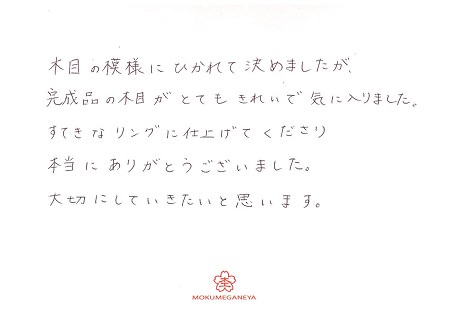 木目の模様にひかれて決めましたが、
完成品の木目がとてもきれいで気に入りました。
すてきなリングに仕上げてくださり
本当にありがとうございました。
大切にしていきたいと思います。
MOKUMEGANEYA